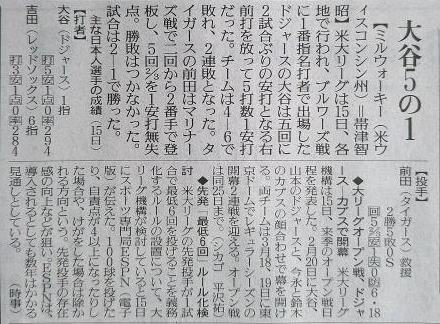 大谷5の1
【ミルウォーキー（米ウ
ィスコンシン州）＝帯津智
昭】米大リーグは15日、各
地で行われ、ブルワーズ戦
に1番指名打者で出場した
ドジャースの大谷は五回に
2試合ぶりの安打となる右
前打を放って5打数1安打
だった。チームは4―6で
敗れ、2連敗となった。タ
イガースの前田はマリナー
ズ戦で二回から2番手で登
板し、5回⅔を1安打無失
点。勝敗はつかなかった。
試合は2―1で勝った。
主な日本人選手の成績（15日）
【打者】
大谷（ドジャース）1指
打5安1点0率294
吉田（レッドソックス）6指
打3安1点0率284
【投手】
前田（タイガース）救援
2勝5敗0S
回5⅔安1責0防6・18
◆大リーグオープン戦、ドジャ
ース―カブスで開幕　米大リーグ
機構は15日、来季のオープン戦日
程を発表した。2月20日に大谷、
山本のドジャースと、今永と鈴木
のカブスの顔合わせで幕を開け
る。両チームは3月18、19日に東
京ドームでレギュラーシーズンの
開幕2連戦を迎える。オープン戦
は同25日まで。（シカゴ　平沢祐）
◆先発、最低6回　ルール化検
討　米大リーグの先発投手が1試
合で最低6回を投げることを義務
化するルールの設置について、大
リーグ機構が検討していると15日
にスポーツ専門局ESPN（電子
版）が伝えた。100球を投げた
り、自責点が4以上になったりし
た場合や、けがをした場合は除か
れる方向という。先発投手の存在
感の向上などが狙い。ESPNは、
導入されるとしても数年はかかる
見通しとしている。（時事）